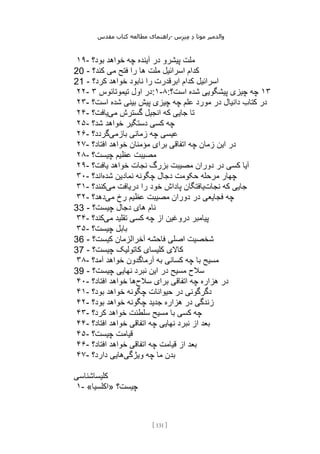 والدمیر مونا ز میرس -راهنمای مطالعه کتاب مقدس
۱۹- ملت پیشرو در آینده چه خواهد بود؟
20 - کدام اسرائیل ملت ها را فتح می کند؟
21 - اسرائیل کدام ابرقدرت را نابود خواهد کرد؟
۲۲- در اول تیموتائوس ۳:۱-۱۳ چه چیزی پیشگویی شده است؟
۲۳- در کتاب دانیال در مورد علم چه چیزی پیش بینی شده است؟
۲۴- تا جایی که انجیل گسترش می‌یافت؟
۲۵- چه کسی دستگیر خواهد شد؟
۲۶- عیسی چه زمانی بازمی‌گردد؟
۲۷- در این زمان چه اتفاقی برای مؤمنان خواهد افتاد؟
۲۸- مصیبت عظیم چیست؟
۲۹- آیا کسی در دوران مصیبت بزرگ نجات خواهد یافت؟
۳۰- چهار مرحله حکومت دجال چگونه نمادین شده‌اند؟
۳۱- جایی که نجات‌یافتگان پاداش خود را دریافت می‌کنند؟
۳۲- چه فجایعی در دوران مصیبت عظیم رخ می‌دهد؟
33 - نام های دجال چیست؟
۳۴- پیامبر دروغین از چه کسی تقلید می‌کند؟
۳۵- بابل چیست؟
36 - شخصیت اصلی فاحشه آخرالزمان کیست؟
37 - کالای کلیسای کاتولیک چیست؟
۳۸- مسیح با چه کسانی به آرماگدون خواهد آمد؟
39 - سلاح مسیح در این نبرد نهایی چیست؟
۴۰- در هزاره چه اتفاقی برای سلاح‌ها خواهد افتاد؟
۴۱- دگرگونی در حیوانات چگونه خواهد بود؟
۴۲- زندگی در هزاره جدید چگونه خواهد بود؟
۴۳- چه کسی با مسیح سلطنت خواهد کرد؟
۴۴- بعد از نبرد نهایی چه اتفاقی خواهد افتاد؟
۴۵- قیامت چیست؟
۴۶- بعد از قیامت چه اتفاقی خواهد افتاد؟
۴۷- بدن ما چه ویژگی‌هایی دارد؟
کلیساشناسی
۱- «اکلسیا» چیست؟
[ 131 ]